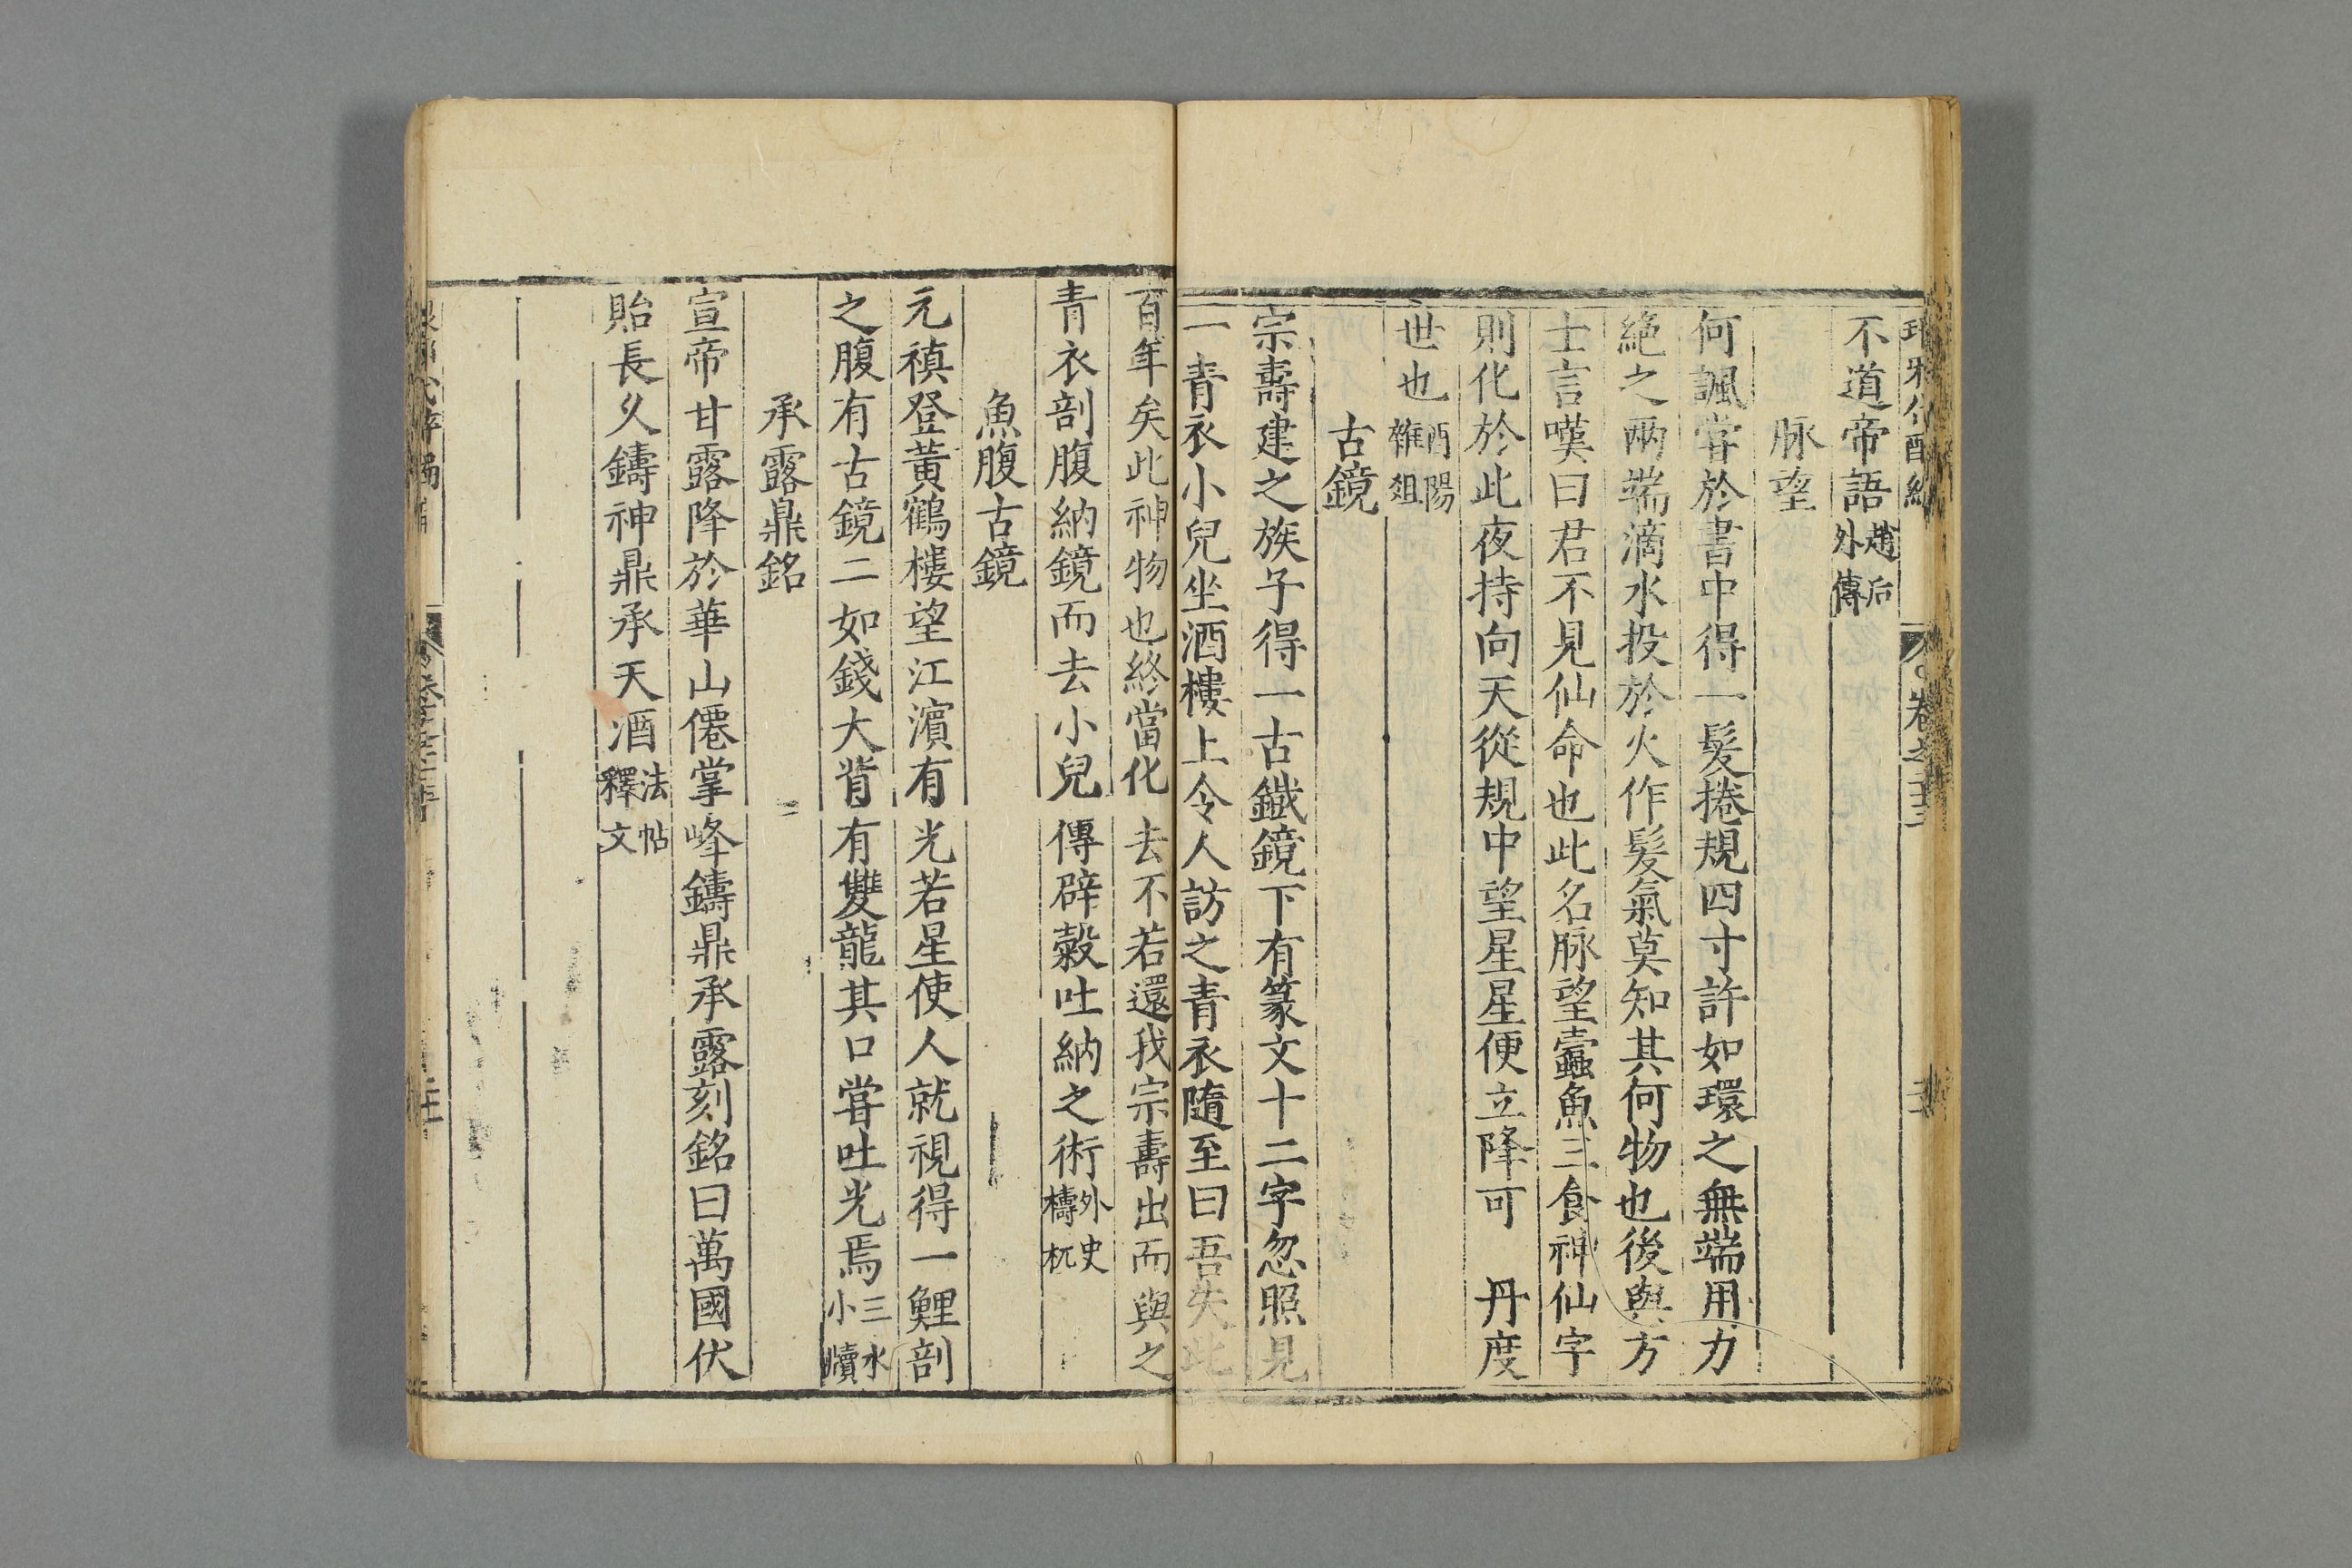 不道帝語趙后外傳
脉望
何諷嘗於書中得一髮捲規四寸許如環之無端用力
絶之兩端滴水投於火作髮氣莫知其何物也後與方
士言嘆曰君不見仙命也此名脉望蠹魚三食神仙字
則化於此夜持向天從規中望星星便立降可 丹度
世也酉陽雜俎
古鏡
宗壽建之族子得一古鐵鏡下有篆文十二字忽照見
一青衣小兒坐酒樓上令人訪之青衣隨至曰吾失此
百年矣此神物也終當化去不若還我宗壽出而與之
青衣剖腹納鏡而去小兒傳辟穀吐納之術外史檮杌
魚腹古鏡
元禛登黃鶴樓望江濵有光若星使人就視得一鯉剖
之腹有古鏡二如錢大背有雙龍其口嘗吐光焉三水小牘
承露鼎銘
宣帝甘露降於華山僊掌峰鑄鼎承露刻銘曰萬國伏
貽長久鑄神鼎承天酒法帖釋文